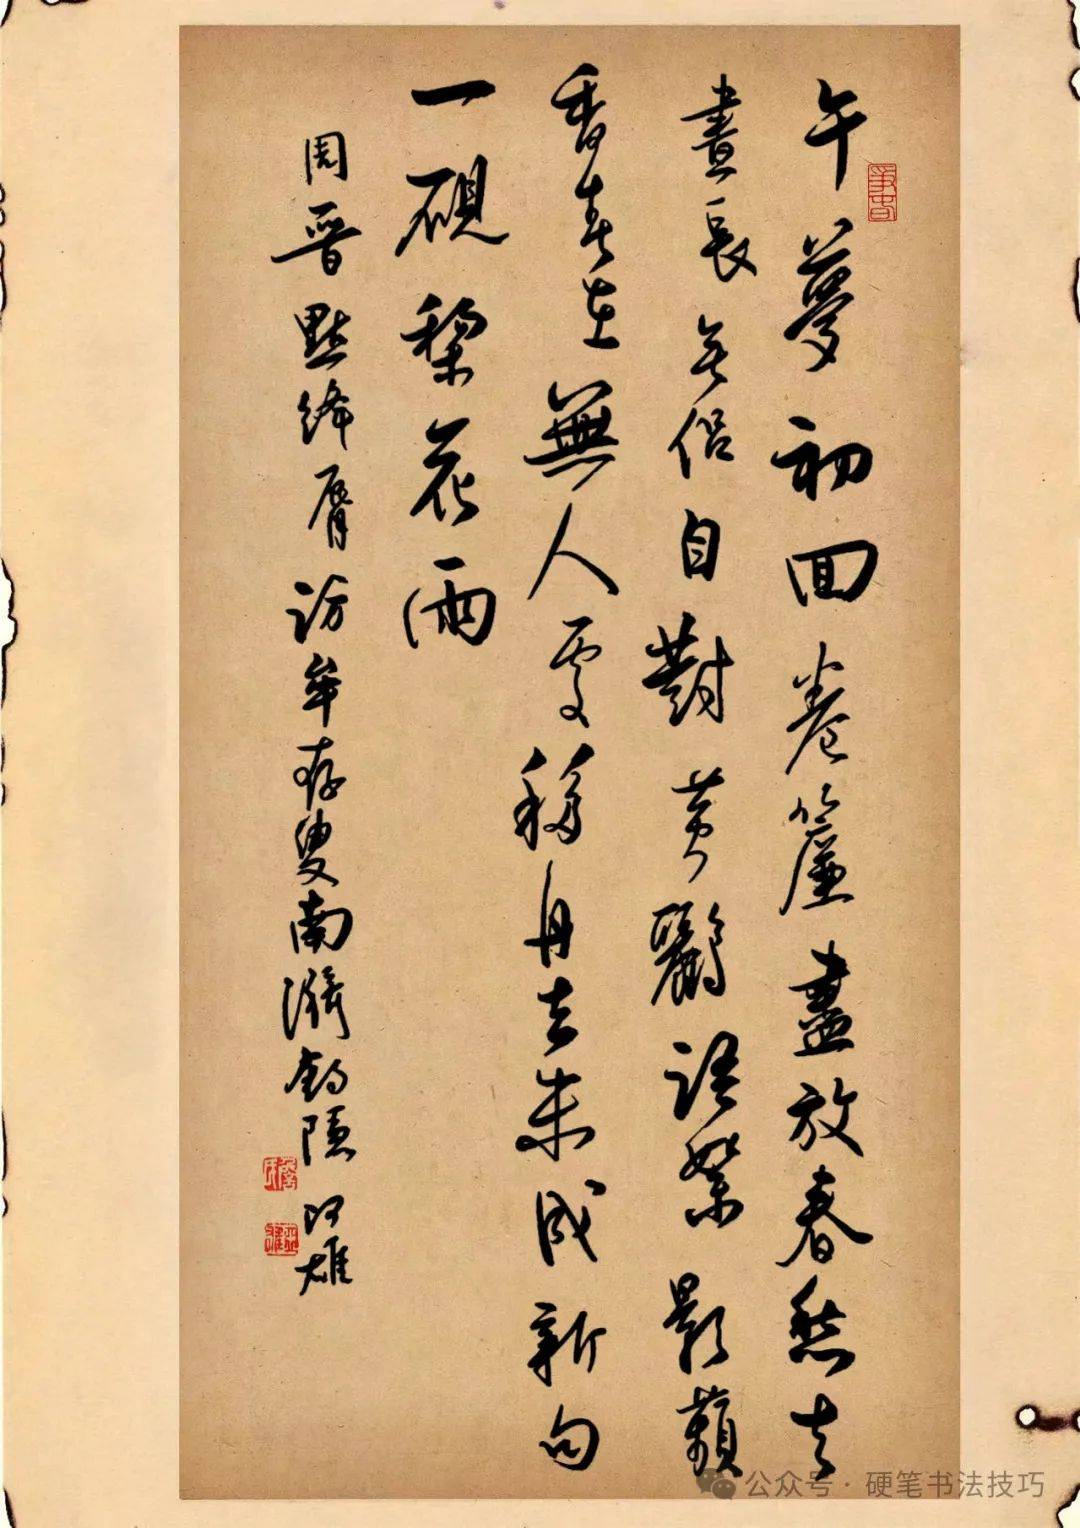 午夢初回卷簾盡放春愁去
晝長無侶自對黄鸝語絮影蘋
香春在無人處移舟去未成新句
一硯梨花雨
周晉點絳脣訪牟存叟南漪釣隱 雄
公众号·硬笔书法技巧